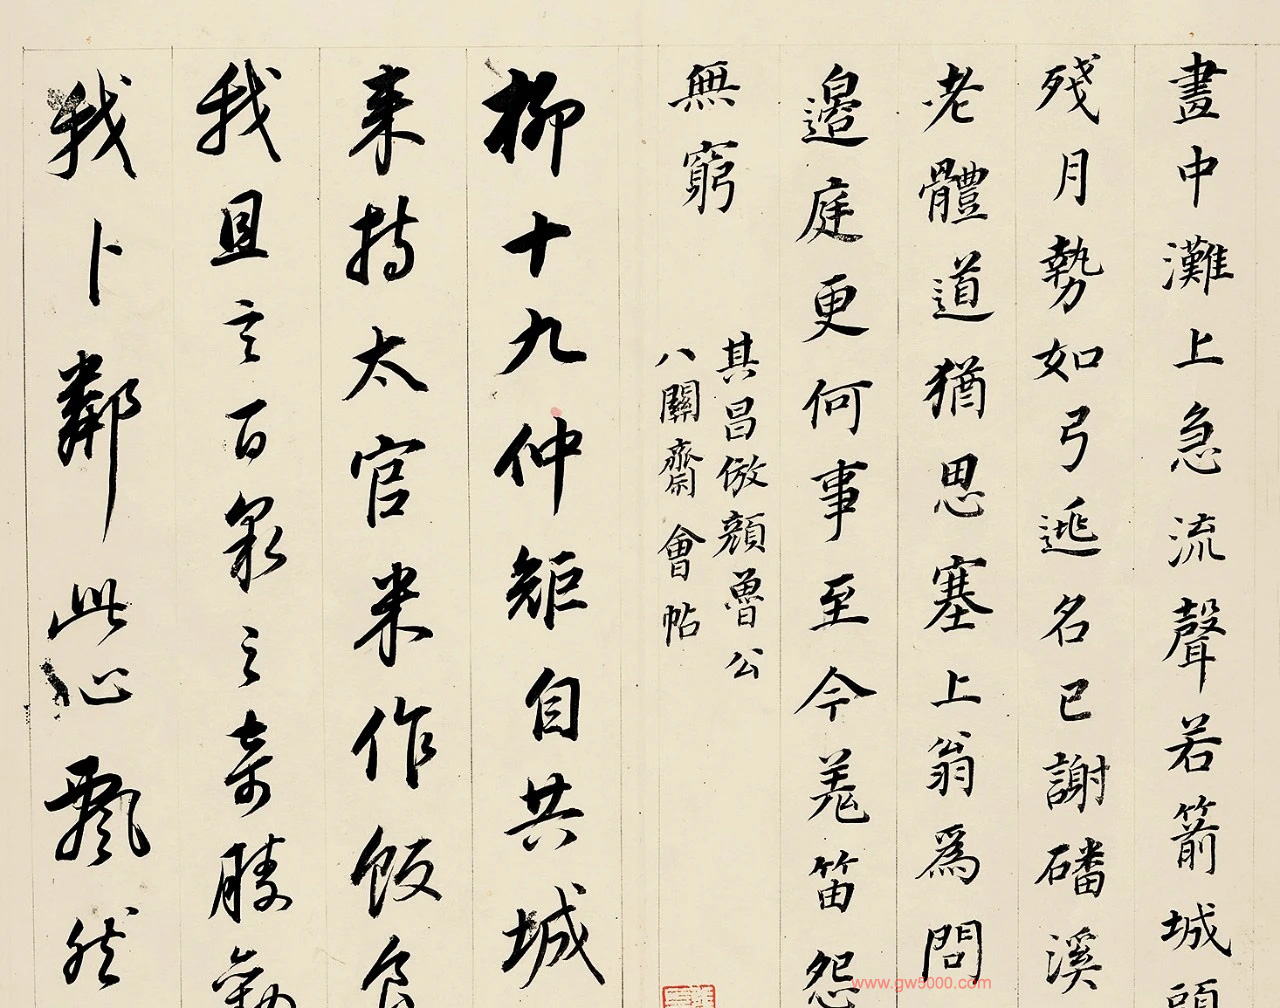 畫中灘上急流聲若箭城頭
殘月勢如弓逃名已謝磻溪
老體道猶思塞上翁為問
邊庭更何事至今羗笛怨
無窮
其昌倣顏魯公
八關齋會帖
柳十九仲矩自共城
來持太官米作飯食
我且言百泉之奇勝勸
我卜鄰此心飄然
www.gw5000.com